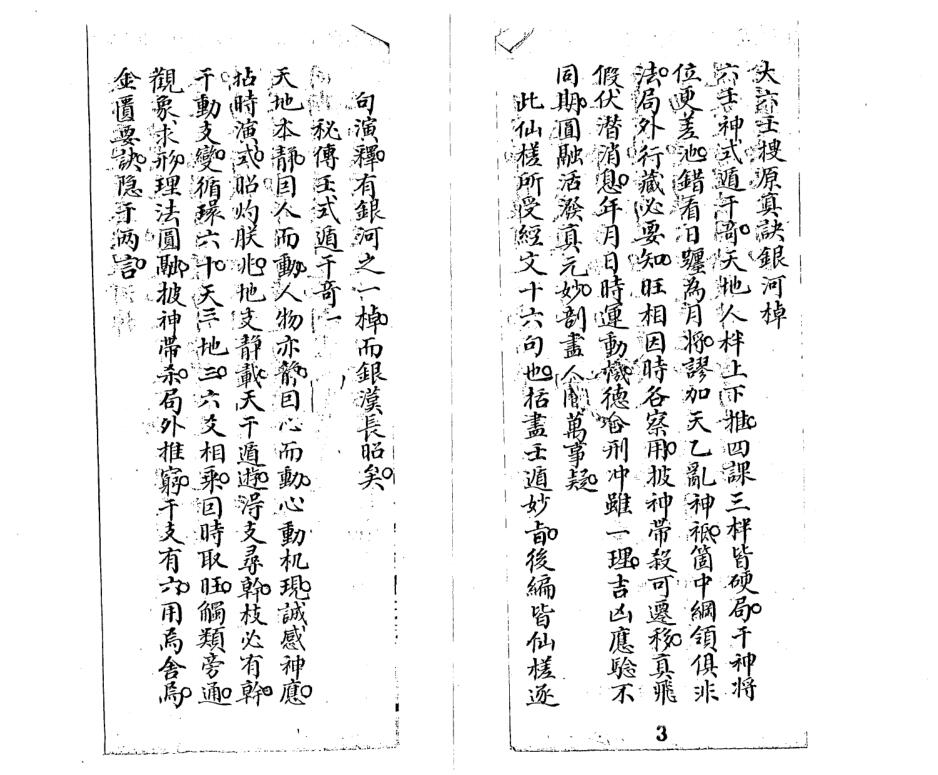 大六壬搜源真訣銀河棹
六壬神式遁干奇。天地人柈上下推。四課三柈皆硬局。干神將
位更差池。錯看日躔為月將。謬加天乙亂神祗。箇中綱領俱非
法。局外行藏必要知。旺相因時各察用。披神帶殺可遷移。真飛
假伏潜消息。年月日時運動微。德合刑冲雖一理。吉凶應驗不
同期。圓融活潑真元妙。剖盡人間萬事疑。
此仙槎所受經文十六句也。括盡壬遁妙旨。後編皆仙槎逐
3
句演釋。有銀河之一棹。而銀漢長昭矣。
秘傳壬式遁干奇一
天地本靜。因人而動。人物亦靜。因心而動。心動机現。誠感神應。
拈時演式。昭灼朕兆。地支靜載。天干遁遊。得支尋幹。枝必有幹。
干動支變。循環六十。天三地三。六爻相乘。因時取旺。觸類旁通。
觀象求形。理法圓融。披神帶杀。局外推窮。干支有六。用焉舍焉。
金匱要訣。隐于两言。